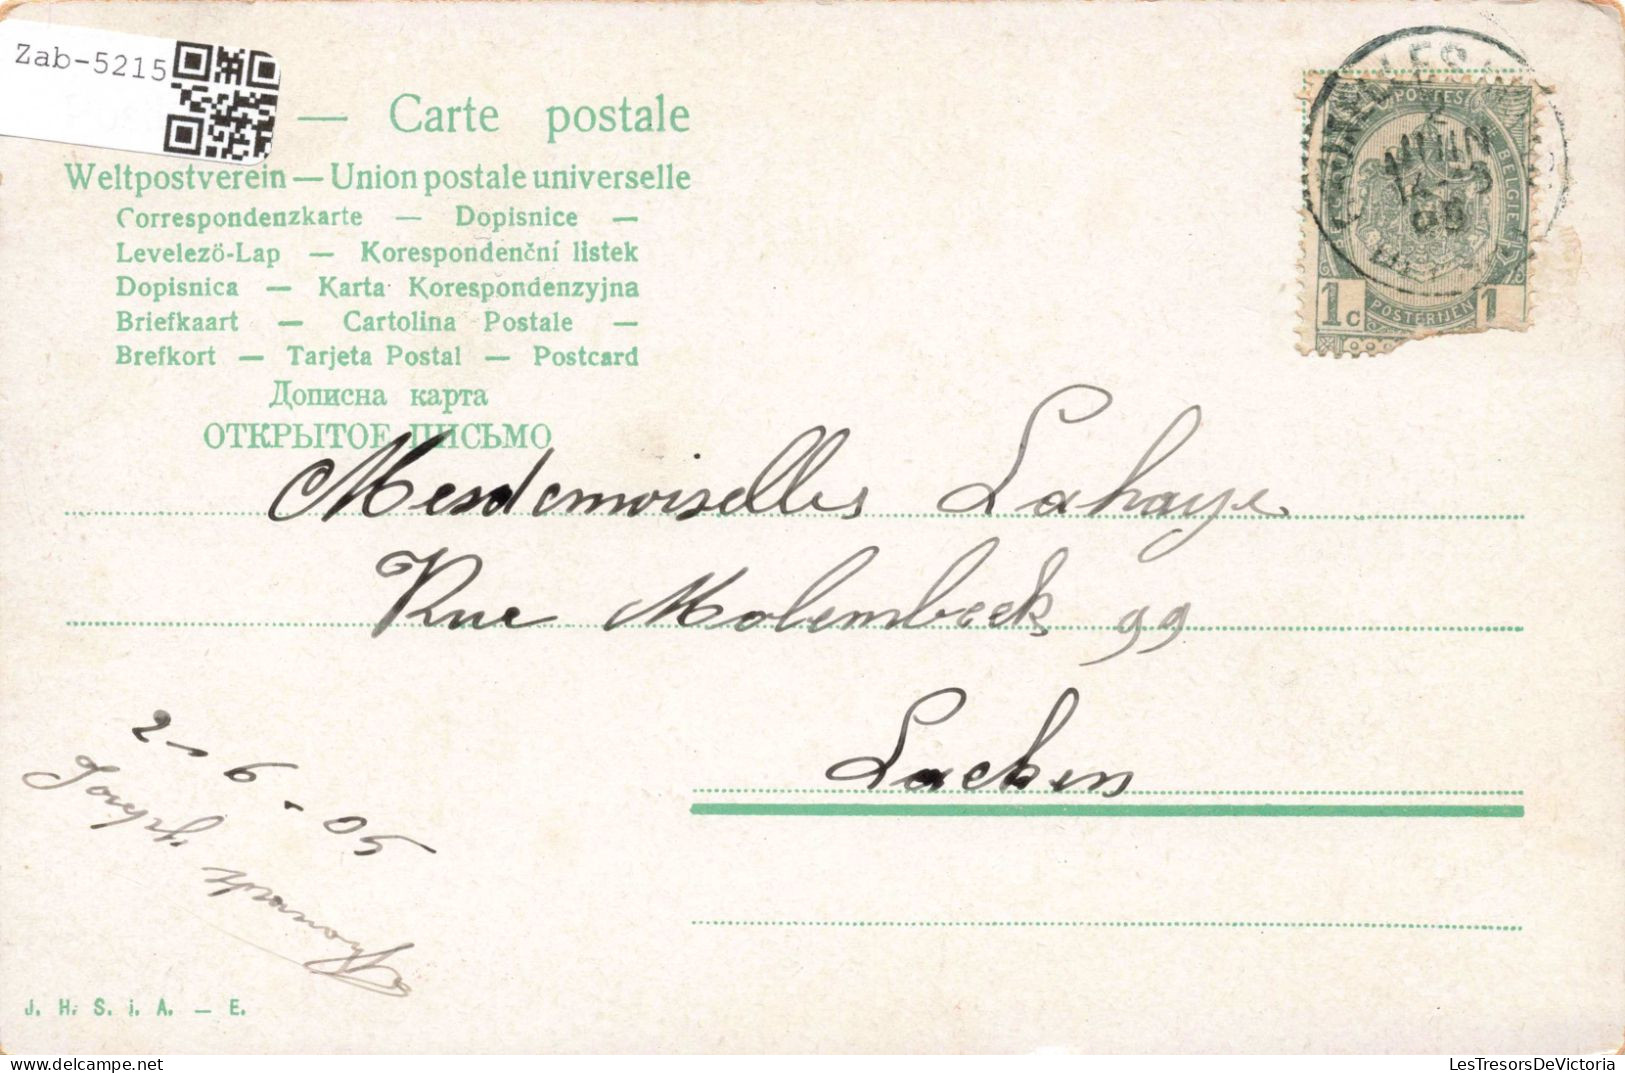 Zab-5215
— Carte postale
Weltpostverein — Union postale universelle
Correspondenzkarte — Dopisnice —
Levelezö-Lap — Korespondenční listek
Dopisnica — Karta Korespondenzyjna
Briefkaart — Cartolina Postale —
Brefkort — Tarjeta Postal — Postcard
Дописна карта
ОТКРЫТОЕ ПИСЬМО
POSTES
BELGIQUE
JUIN
05
1c
POSTERIJEN
1
Mesdemoiselles Lahaye
Rue Molembeek 99
Laeken
2-6-05
Joseph
J. H. S. i. A. — E.
LesTresorsDeVictoria